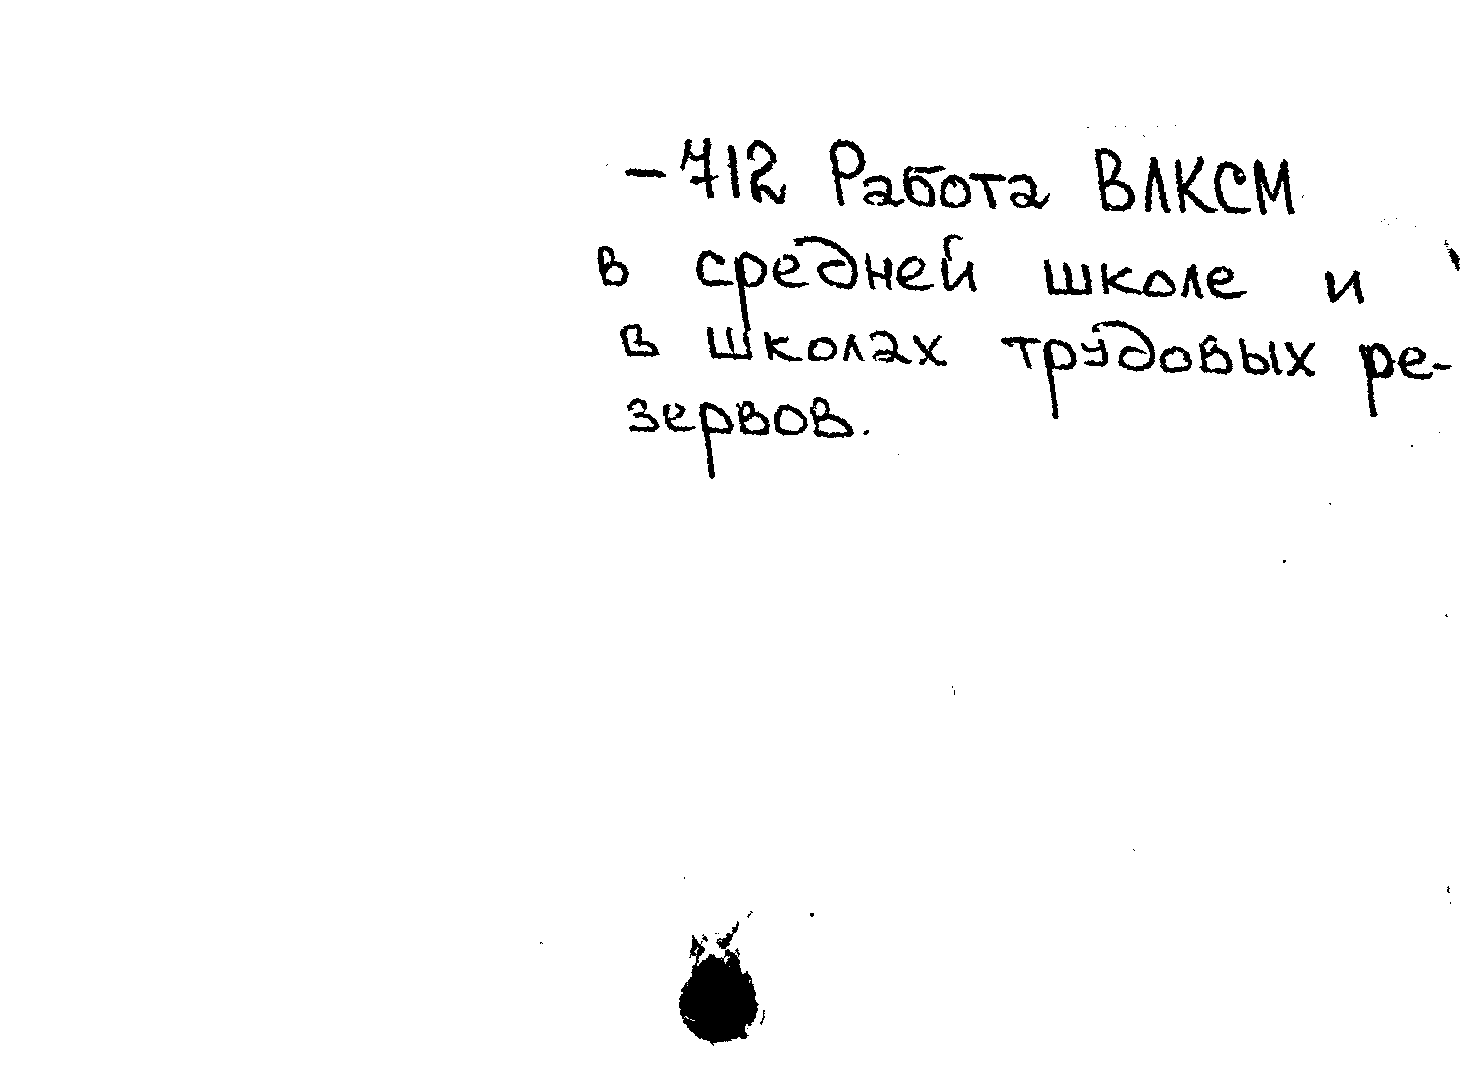 -712 Работа ВЛКСМ
в средней школе и
в школах трудовых ре-
зервов.